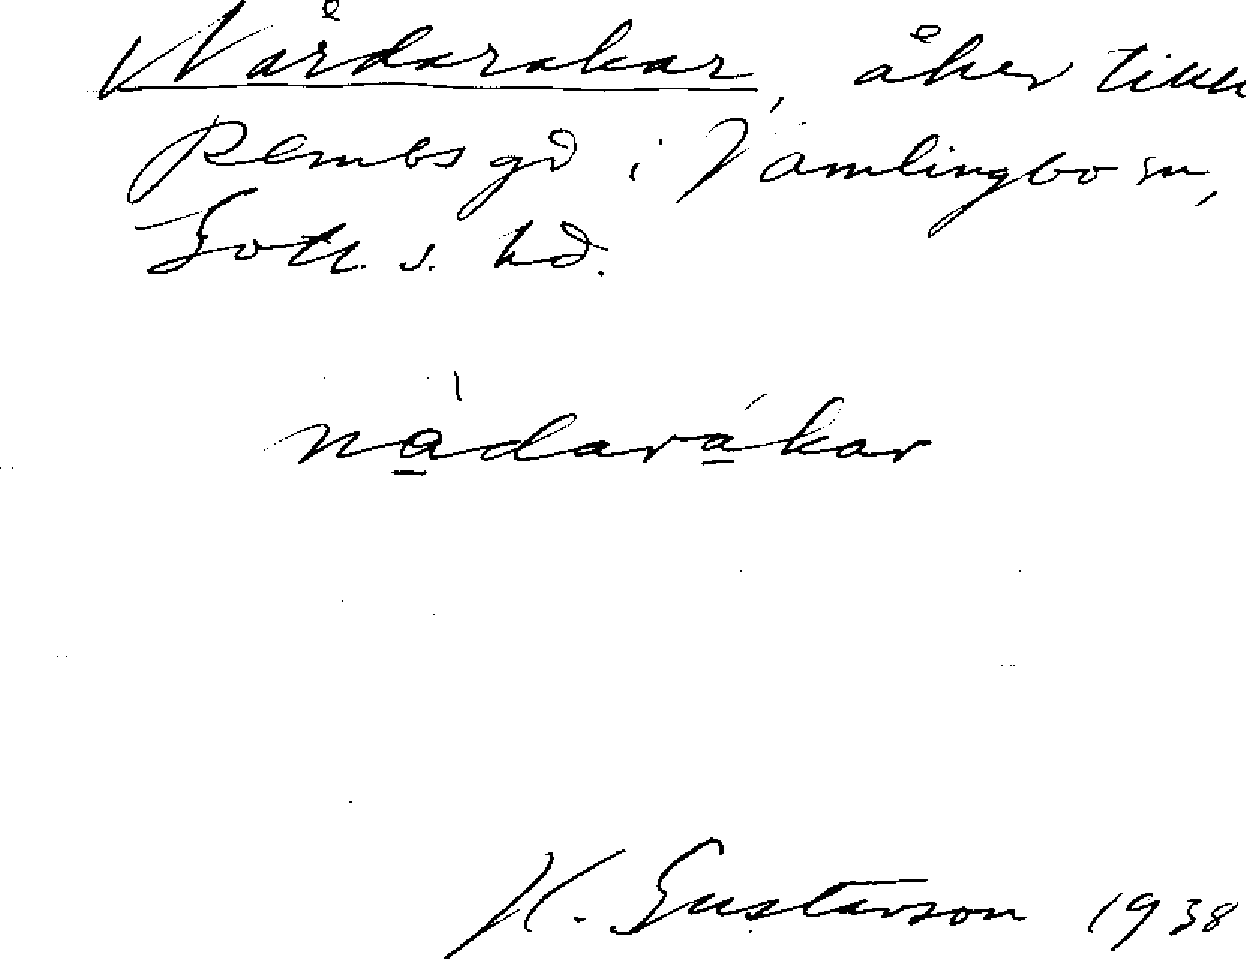 Nårdarakar, åker till
Rembs gd i Vamlingbo sn,
Gotl. s. hd.
nàdarákar
H. Gustavson 1938